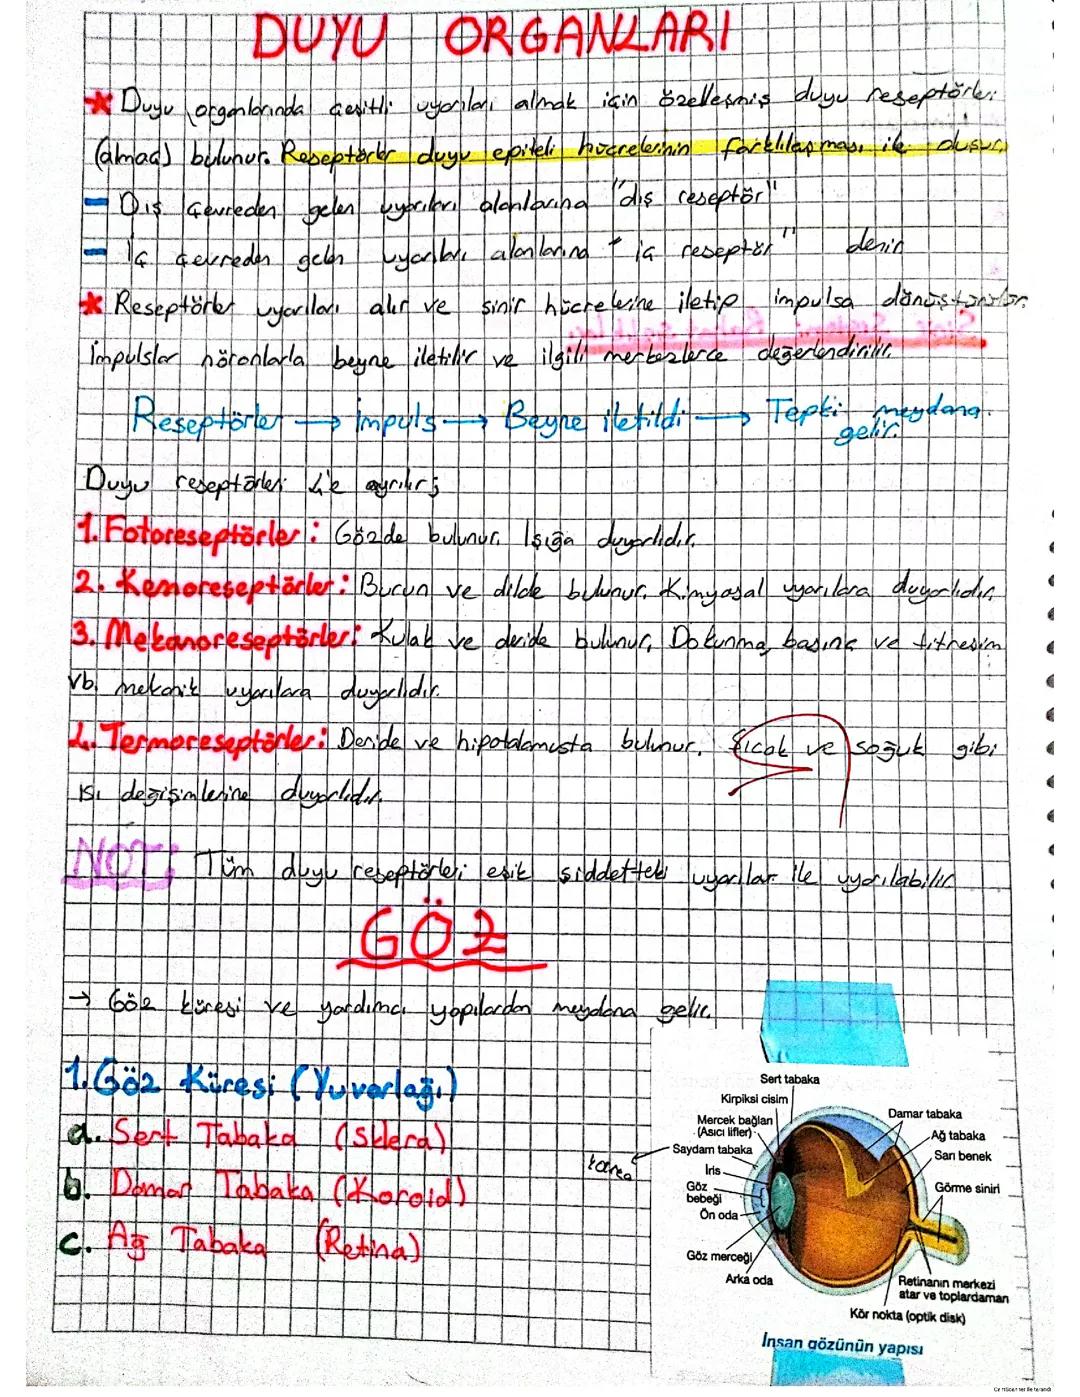 DUYU ORGANLARI
* Duyu organlarında çeşitli uyarıları almak için özelleşmiş duyu reseptörleri
(almaç) bulunur. Reseptörler duyu epiteli hücrelerinin farklılaşması ile oluşur.
- Dış çevreden gelen uyarıları alanlarına "dış reseptör"
- İç çevreden gelen uyarıları alanlarına "iç reseptör" denir
* Reseptörler uyarıları alır ve sinir hücrelerine iletip impulsa dönüştürürler.
İmpulslar nöronlarla beyne iletilir ve ilgili merkezlerce değerlendirilir.
Reseptörler → İmpuls → Beyne iletildi → Tepki meydana
gelir.
Duyu reseptörleri 4'e ayrılır;
1. Fotoreseptörler: Gözde bulunur. Işığa duyarlıdır.
2. Kemoreseptörler: Burun ve dilde bulunur. Kimyasal uyarılara duyarlıdır.
3. Mekanoreseptörler: Kulak ve deride bulunur. Dokunma, basınç ve titreşim
vb. mekanik uyarılara duyarlıdır.
4. Termoreseptörler: Deride ve hipotalamusta bulunur. Sıcak ve soğuk gibi
ısı değişimlerine duyarlıdır.
NOT: Tüm duyu reseptörleri eşik şiddetteki uyarılar ile uyarılabilir
GÖZ
→ Göz küresi ve yardımcı yapılardan meydana gelir.
1. Göz Küresi (Yuvarlağı)
a. Sert Tabaka (Sklera)
b. Damar Tabaka (Koroid)
c. Ağ Tabaka (Retina)
Sert tabaka
Kirpiksi cisim
Mercek bağları
(Asıcı lifler)
Saydam tabaka
kornea
İris
Göz
bebeği
Ön oda
Göz merceği
Arka oda
Damar tabaka
Ağ tabaka
Sarı benek
Görme siniri
Retinanın merkezi
atar ve toplardaman
Kör nokta (optik disk)
İnsan gözünün yapısı